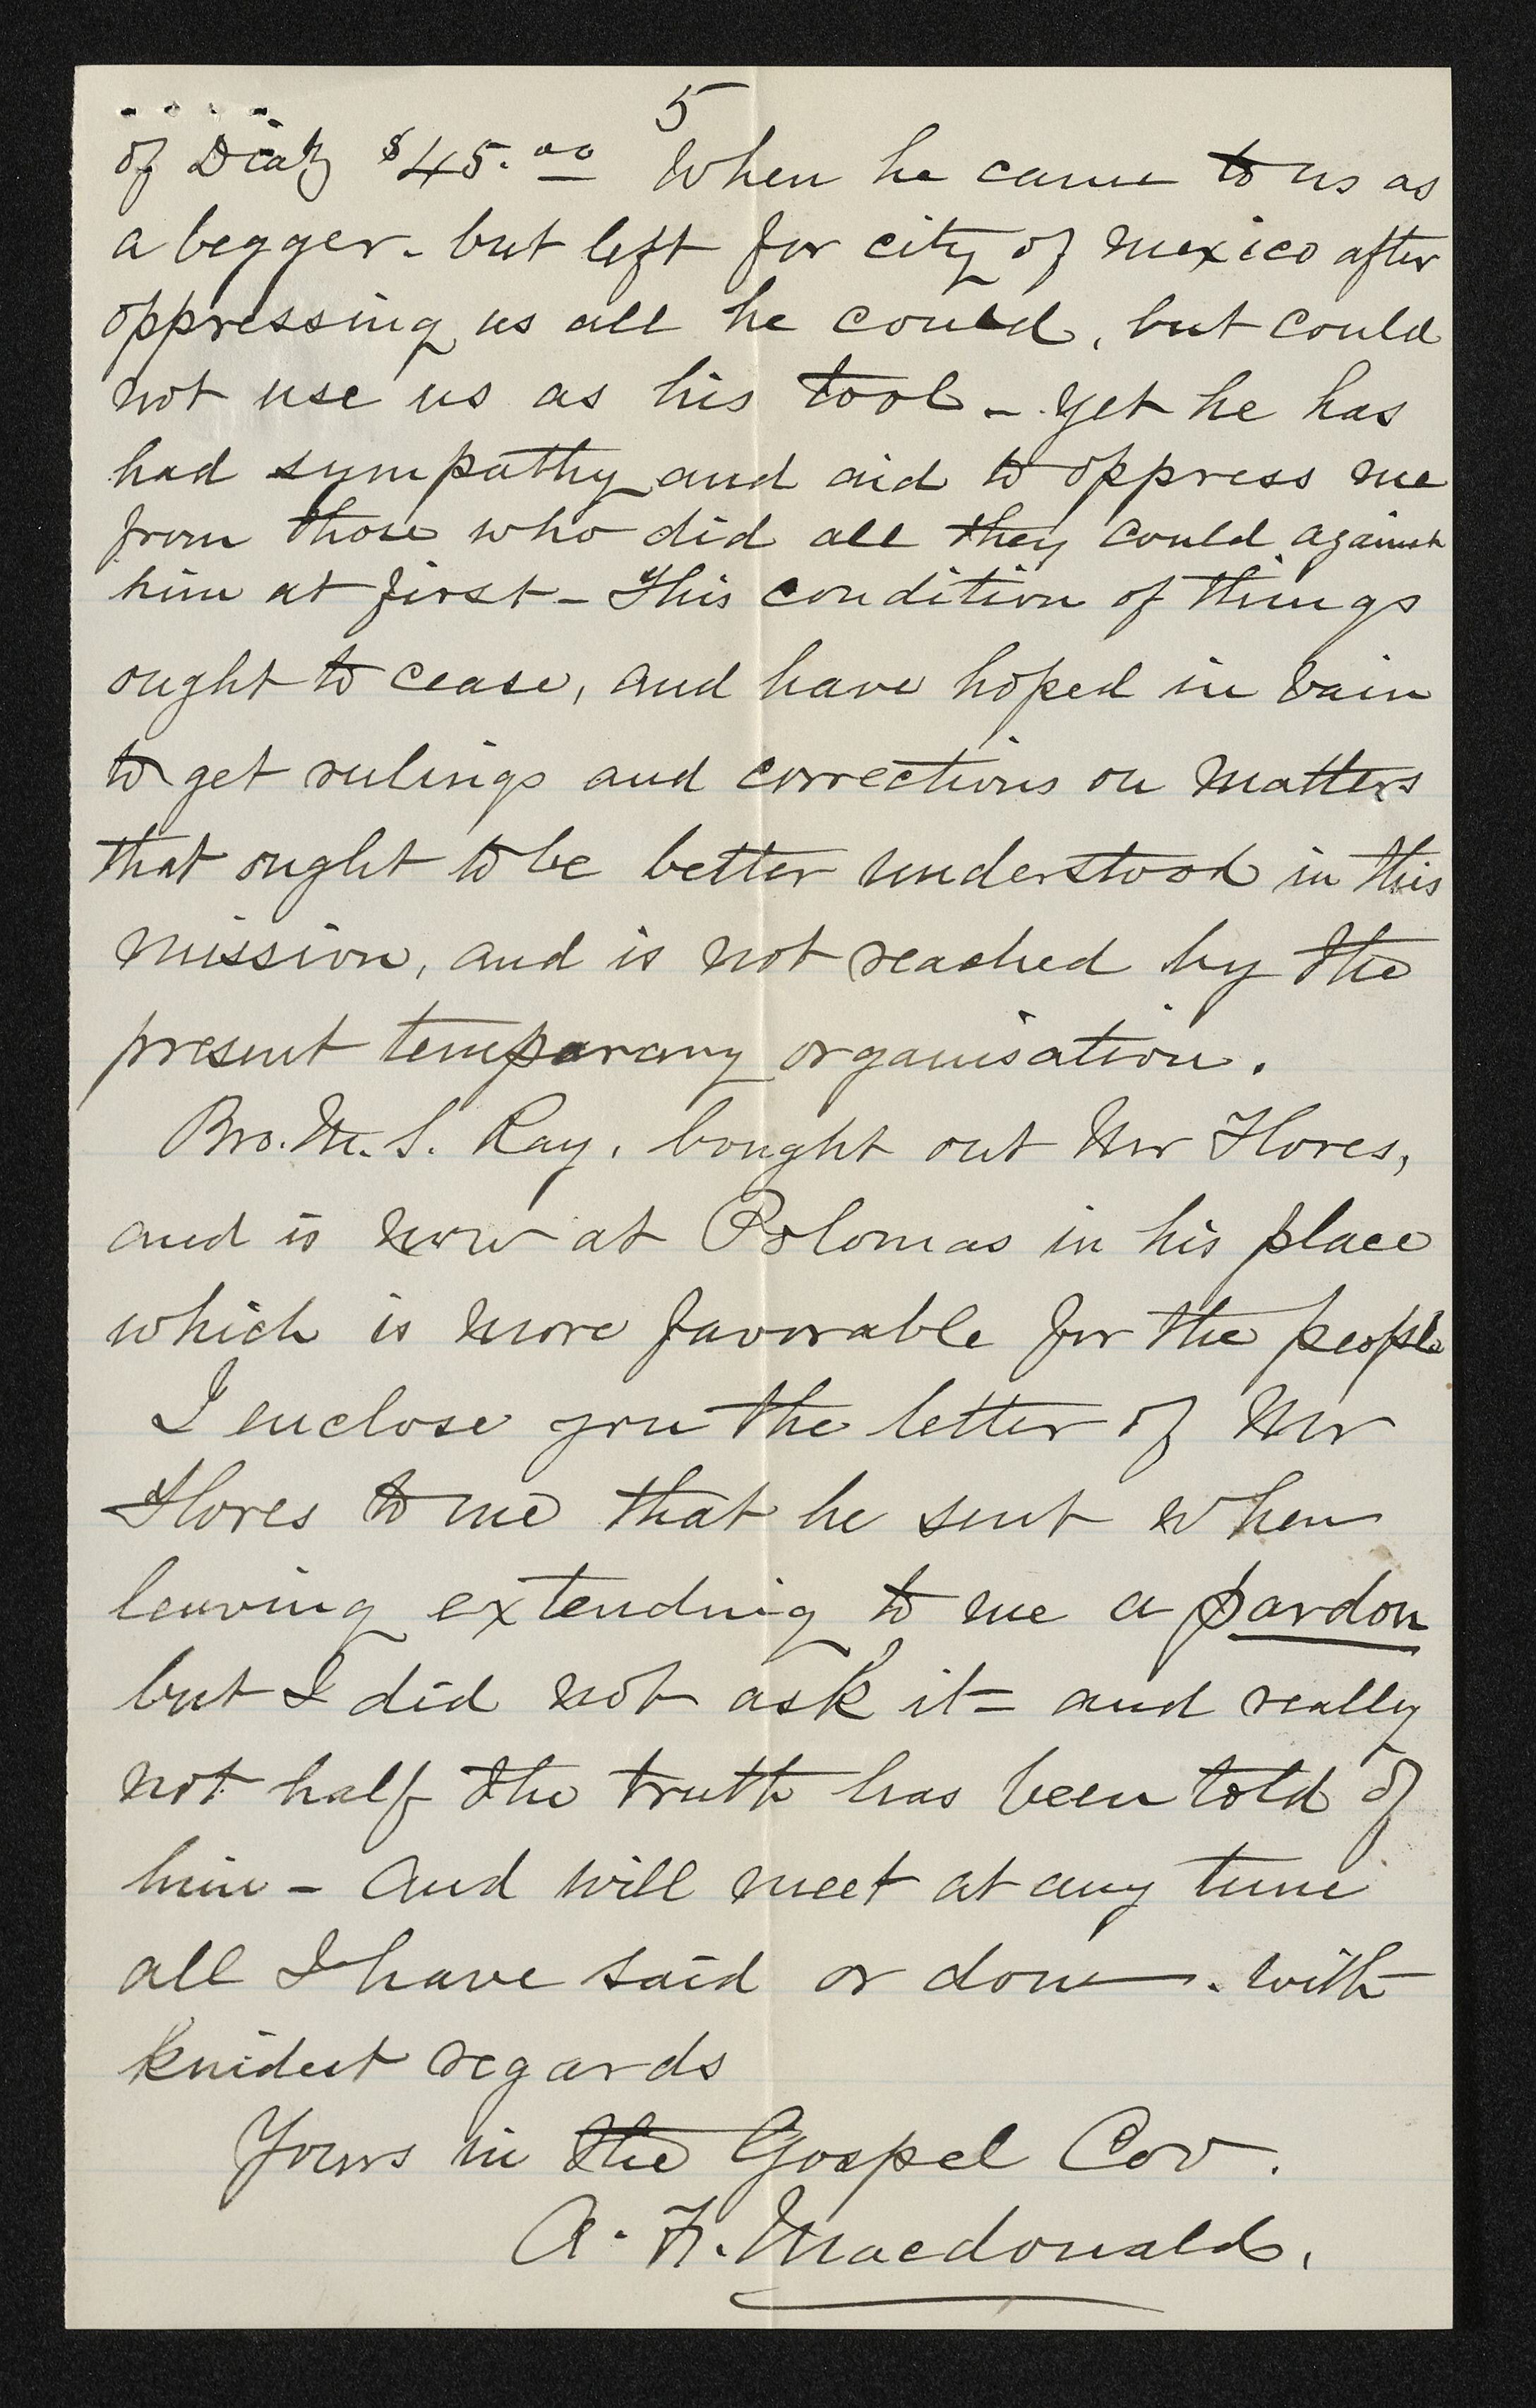 5
of Diaz $45.00 When he came to us as
a begger - but left for city of Mexico after
oppressing us all he could, but could
not use us as his tool - yet he has
had sympathy and aid to oppress me
from those who did all they could against
him at first - This condition of things
ought to cease, and have hoped in vain
to get rulings and corrections on matters
that ought to be better understood in this
mission, and is not reached by the
present temparary organisation.
Bro. M. S. Ray, bought out Mr Flores,
and is now at Polomas in his place
which is more favorable for the people
I enclose you the letter of Mr
Flores to me that he sent when
leaving extending to me a pardon
but I did not ask it - and really
not half the truth has been told of
him - and will meet at any time
all I have said or done. with
kindest regards
Yours in the Gospel Cov.
A. F. Macdonald.